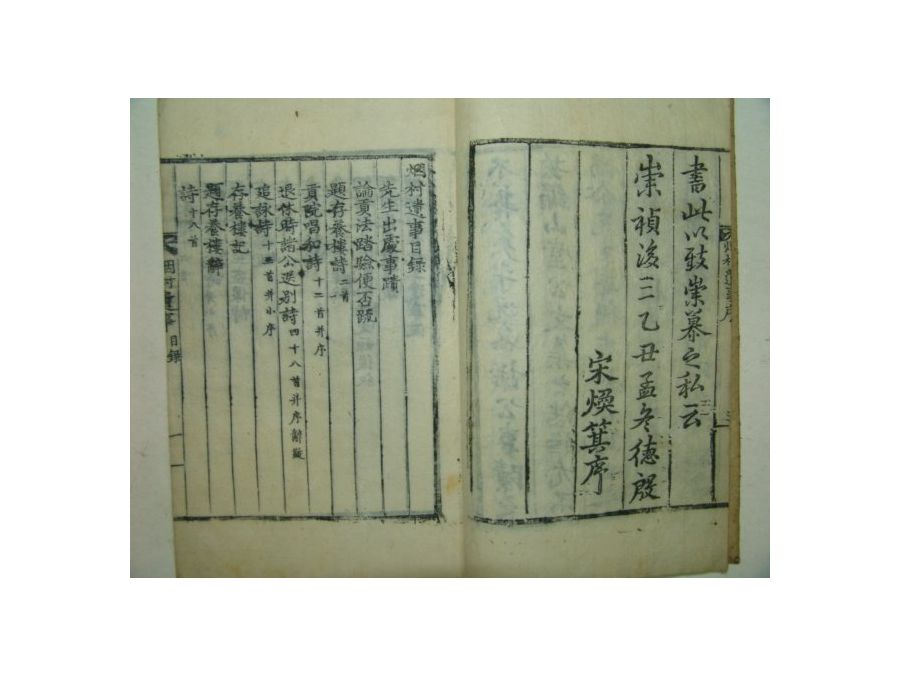 書此以致崇慕之私云
崇禎後三乙丑孟冬德殷
宋煥箕序
烟村遺事目錄
先生出處事蹟
論貢法踏驗便否疏
題存養樓詩二首
貢院唱和詩十二首并序
退休時諸公送別詩四十八首并序辭
追詠詩十三首并小序
存養樓記
題存養樓辭
詩十八首
烟村遺事 目錄